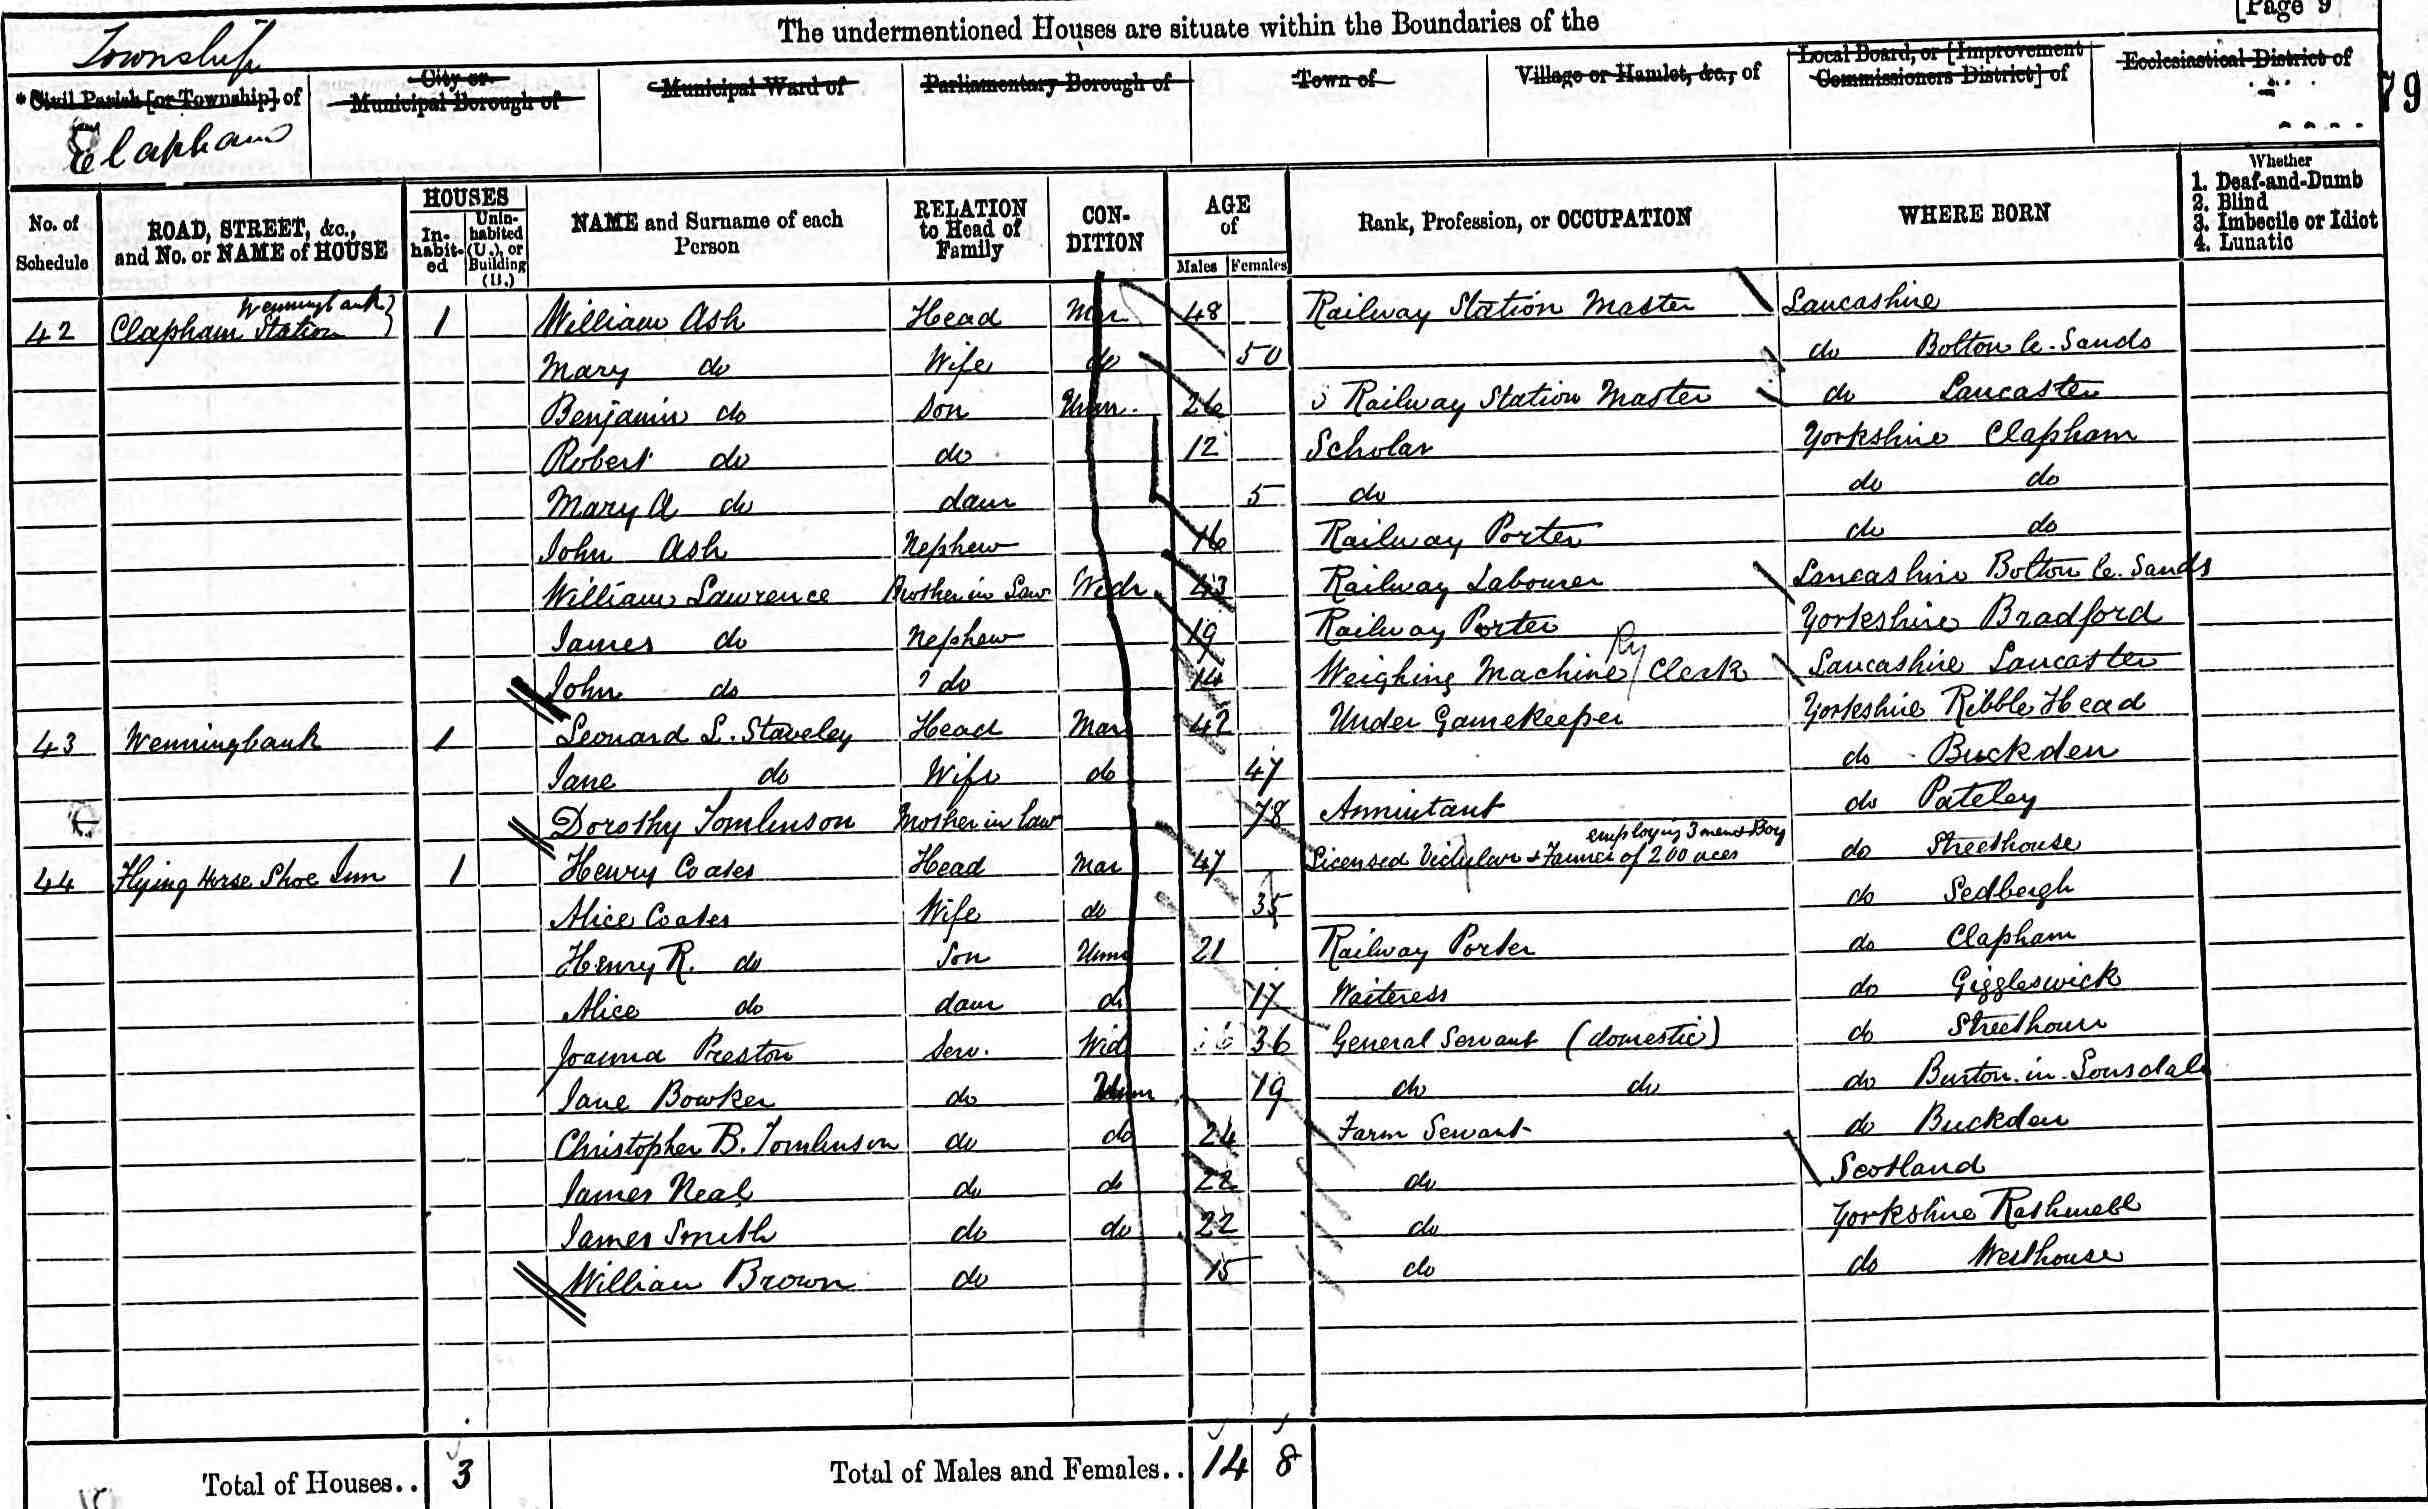 [Page 9
The undermentioned Houses are situate within the Boundaries of the
Township
Civil Parish [or Township] of
City or Municipal Borough of
Municipal Ward of
Parliamentary Borough of
Town of
Village or Hamlet, &c., of
Local Board, or [Improvement Commissioners District] of
Ecclesiastical District of
79
Clapham
No. of Schedule
ROAD, STREET, &c., and No. or NAME of HOUSE
HOUSES
In-habit-ed
Unin-habited (U.), or Building (B.)
NAME and Surname of each Person
RELATION to Head of Family
CON-DITION
AGE of
Males Females
Rank, Profession, or OCCUPATION
WHERE BORN
Whether
1. Deaf-and-Dumb
2. Blind
3. Imbecile or Idiot
4. Lunatic
42 Clapham Station Wenningbank 1 William Ash Head Mar 48 Railway Station Master Lancashire
Mary do Wife do 50 do Bolton le Sands
Benjamin do Son Unm. 26 Railway Station Master do Lancaster
Robert do do 12 Scholar Yorkshire Clapham
Mary A do daur 5 do do do
John Ash Nephew 16 Railway Porter do do
William Lawrence Brother in Law Widr 43 Railway Labourer Lancashire Bolton le. Sands
James do Nephew 19 Railway Porter Yorkshire Bradford
John do ? do 14 Weighing Machine Ry Clerk Lancashire Lancaster
43 Wenningbank 1 Leonard L. Staveley Head Mar 42 Under Gamekeeper Yorkshire Ribble Head
Jane do Wife do 47 do Buckden
Dorothy Tomlinson Mother in law 78 Annuitant do Pateley
44 Flying Horse Shoe Inn 1 Henry Coates Head Mar 47 Licensed Victular & Farmer of 200 acres employing 3 men & Boy do Streethouse
Alice Coates Wife do 35 do Sedbergh
Henry R. do Son Unm 21 Railway Porter do Clapham
Alice do daur do 17 Waiteress do Giggleswick
Joanna Preston Serv. Wid 36 General Servant (domestic) do Streethouse
Jane Bowker do Unm 19 do do do Burton in Lonsdale
Christopher B. Tomlinson do do 24 Farm Servant do Buckden
James Neal do do 22 do Scotland
James Smith do do 22 do Yorkshire Rathmell
William Brown do 15 do do Westhouse
Total of Houses.. 3 Total of Males and Females.. 14 8